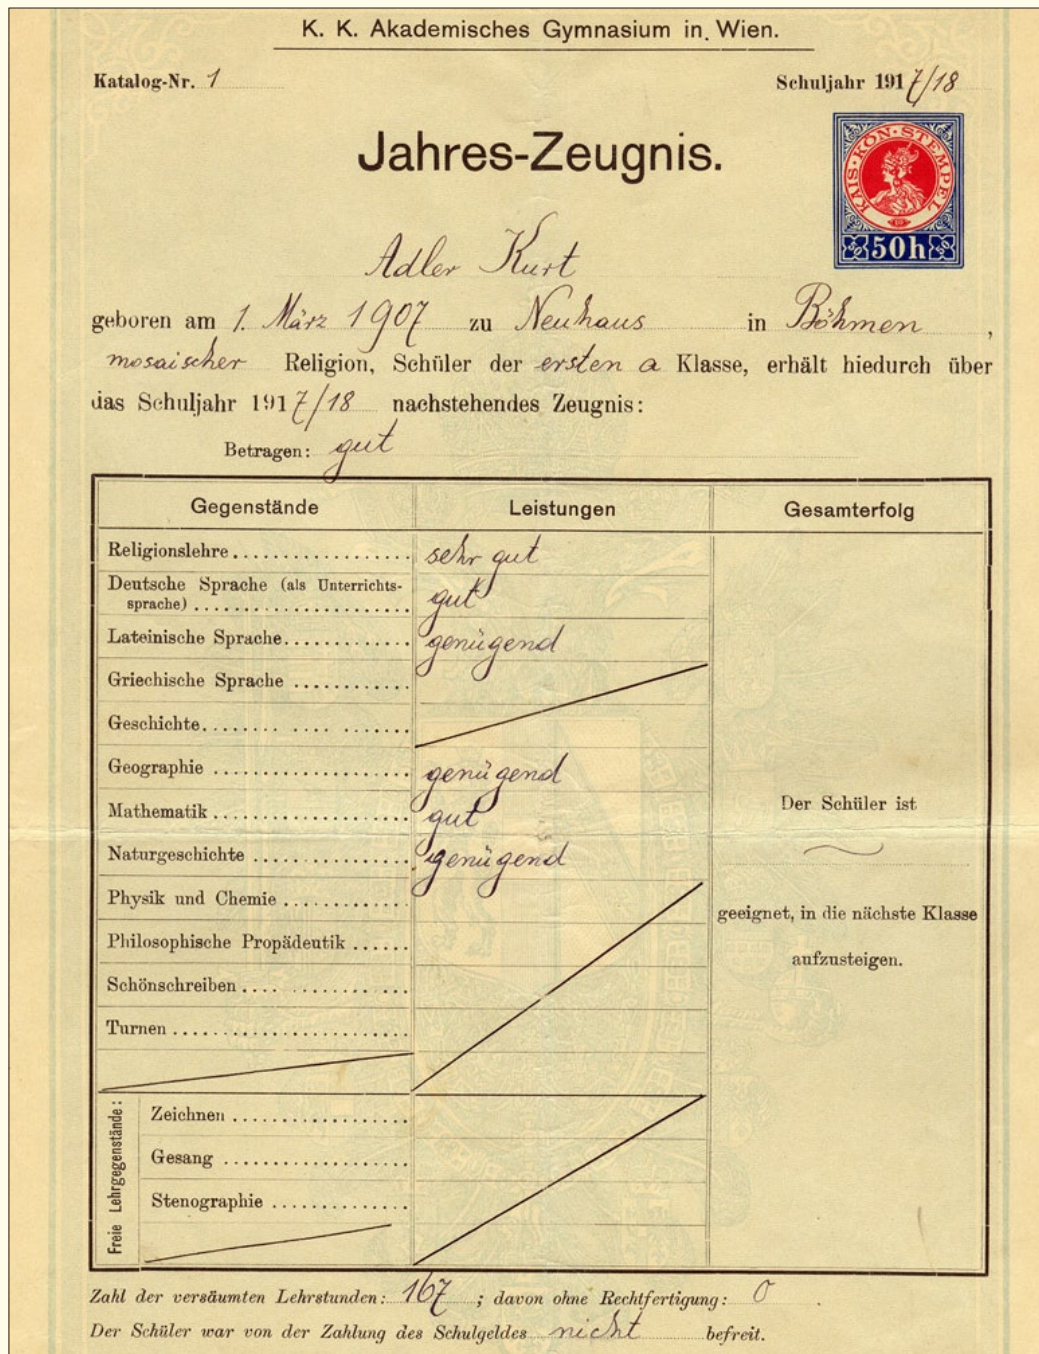 K. K. Akademisches Gymnasium in Wien.
Katalog-Nr. 1 Schuljahr 1917/18
KAIS·KÖN·STEMPEL
50 h
Jahres-Zeugnis.
Adler Kurt
geboren am 1. März 1907 zu Neuhaus in Böhmen,
mosaischer Religion, Schüler der ersten a Klasse, erhält hiedurch über
das Schuljahr 1917/18 nachstehendes Zeugnis:
Betragen: gut
Gegenstände Leistungen Gesamterfolg
Religionslehre sehr gut
Deutsche Sprache (als Unterrichts-
sprache) gut
Lateinische Sprache genügend
Griechische Sprache
Geschichte
Geographie genügend
Mathematik gut
Der Schüler ist
Naturgeschichte genügend
Physik und Chemie
geeignet, in die nächste Klasse
Philosophische Propädeutik
aufzusteigen.
Schönschreiben
Turnen
Freie Lehrgegenstände:
Zeichnen
Gesang
Stenographie
Zahl der versäumten Lehrstunden: 167; davon ohne Rechtfertigung: 0.
Der Schüler war von der Zahlung des Schulgeldes nicht befreit.